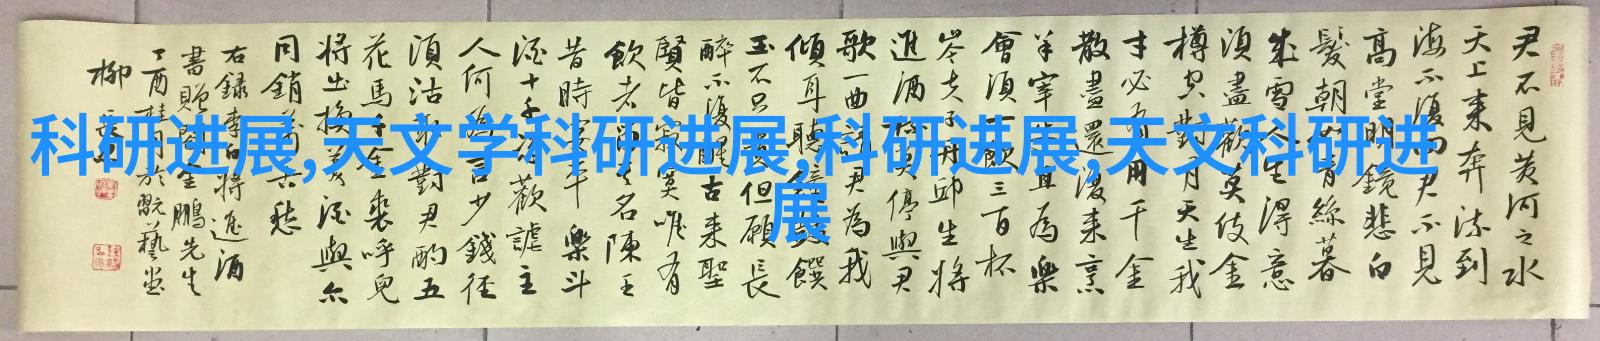 君不見黄河之水
天上来奔流到
海不復回君不見
高堂明鏡悲白
髮朝如青絲暮
成雪人生得意
須盡歡莫使金
樽空對月天生我
才必有用千金
散盡還復来烹
羊宰牛且為樂
會須一飲三百杯
岑夫子丹邱生將
進酒杯莫停與君
歌一曲請君為我
傾耳聽饌
玉不足貴但願長
醉不復醒古来聖
賢皆寂寞唯有
飲者留其名陳王
昔時宴平樂斗
酒十千恣歡謔主
人何為言少錢徑
須沽取對君酌五
花馬千金裘呼兒
將出換美酒與尔
同銷萬古愁
右録李白將進酒
書贈金鵬先生
丁酉桂月於藝堂
柳
科研进展,天文学科研进展,科研进展,天文科研进
展